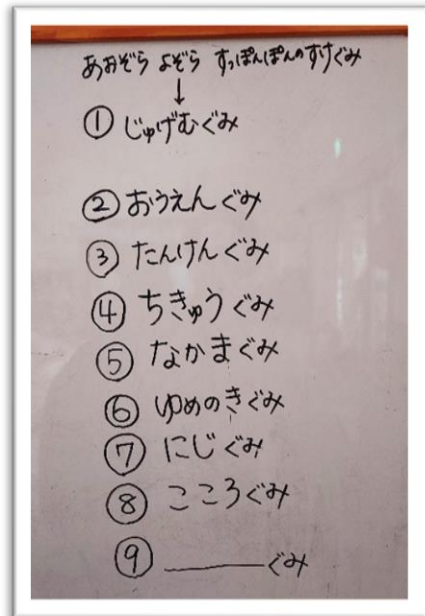 あおぞら よぞら すっぽんぽんのすけぐみ
↓
① じゅげむぐみ
② おうえんぐみ
③ たんけんぐみ
④ ちきゅうぐみ
⑤ なかまぐみ
⑥ ゆめのきぐみ
⑦ にじぐみ
⑧ こころぐみ
⑨ ______ぐみ